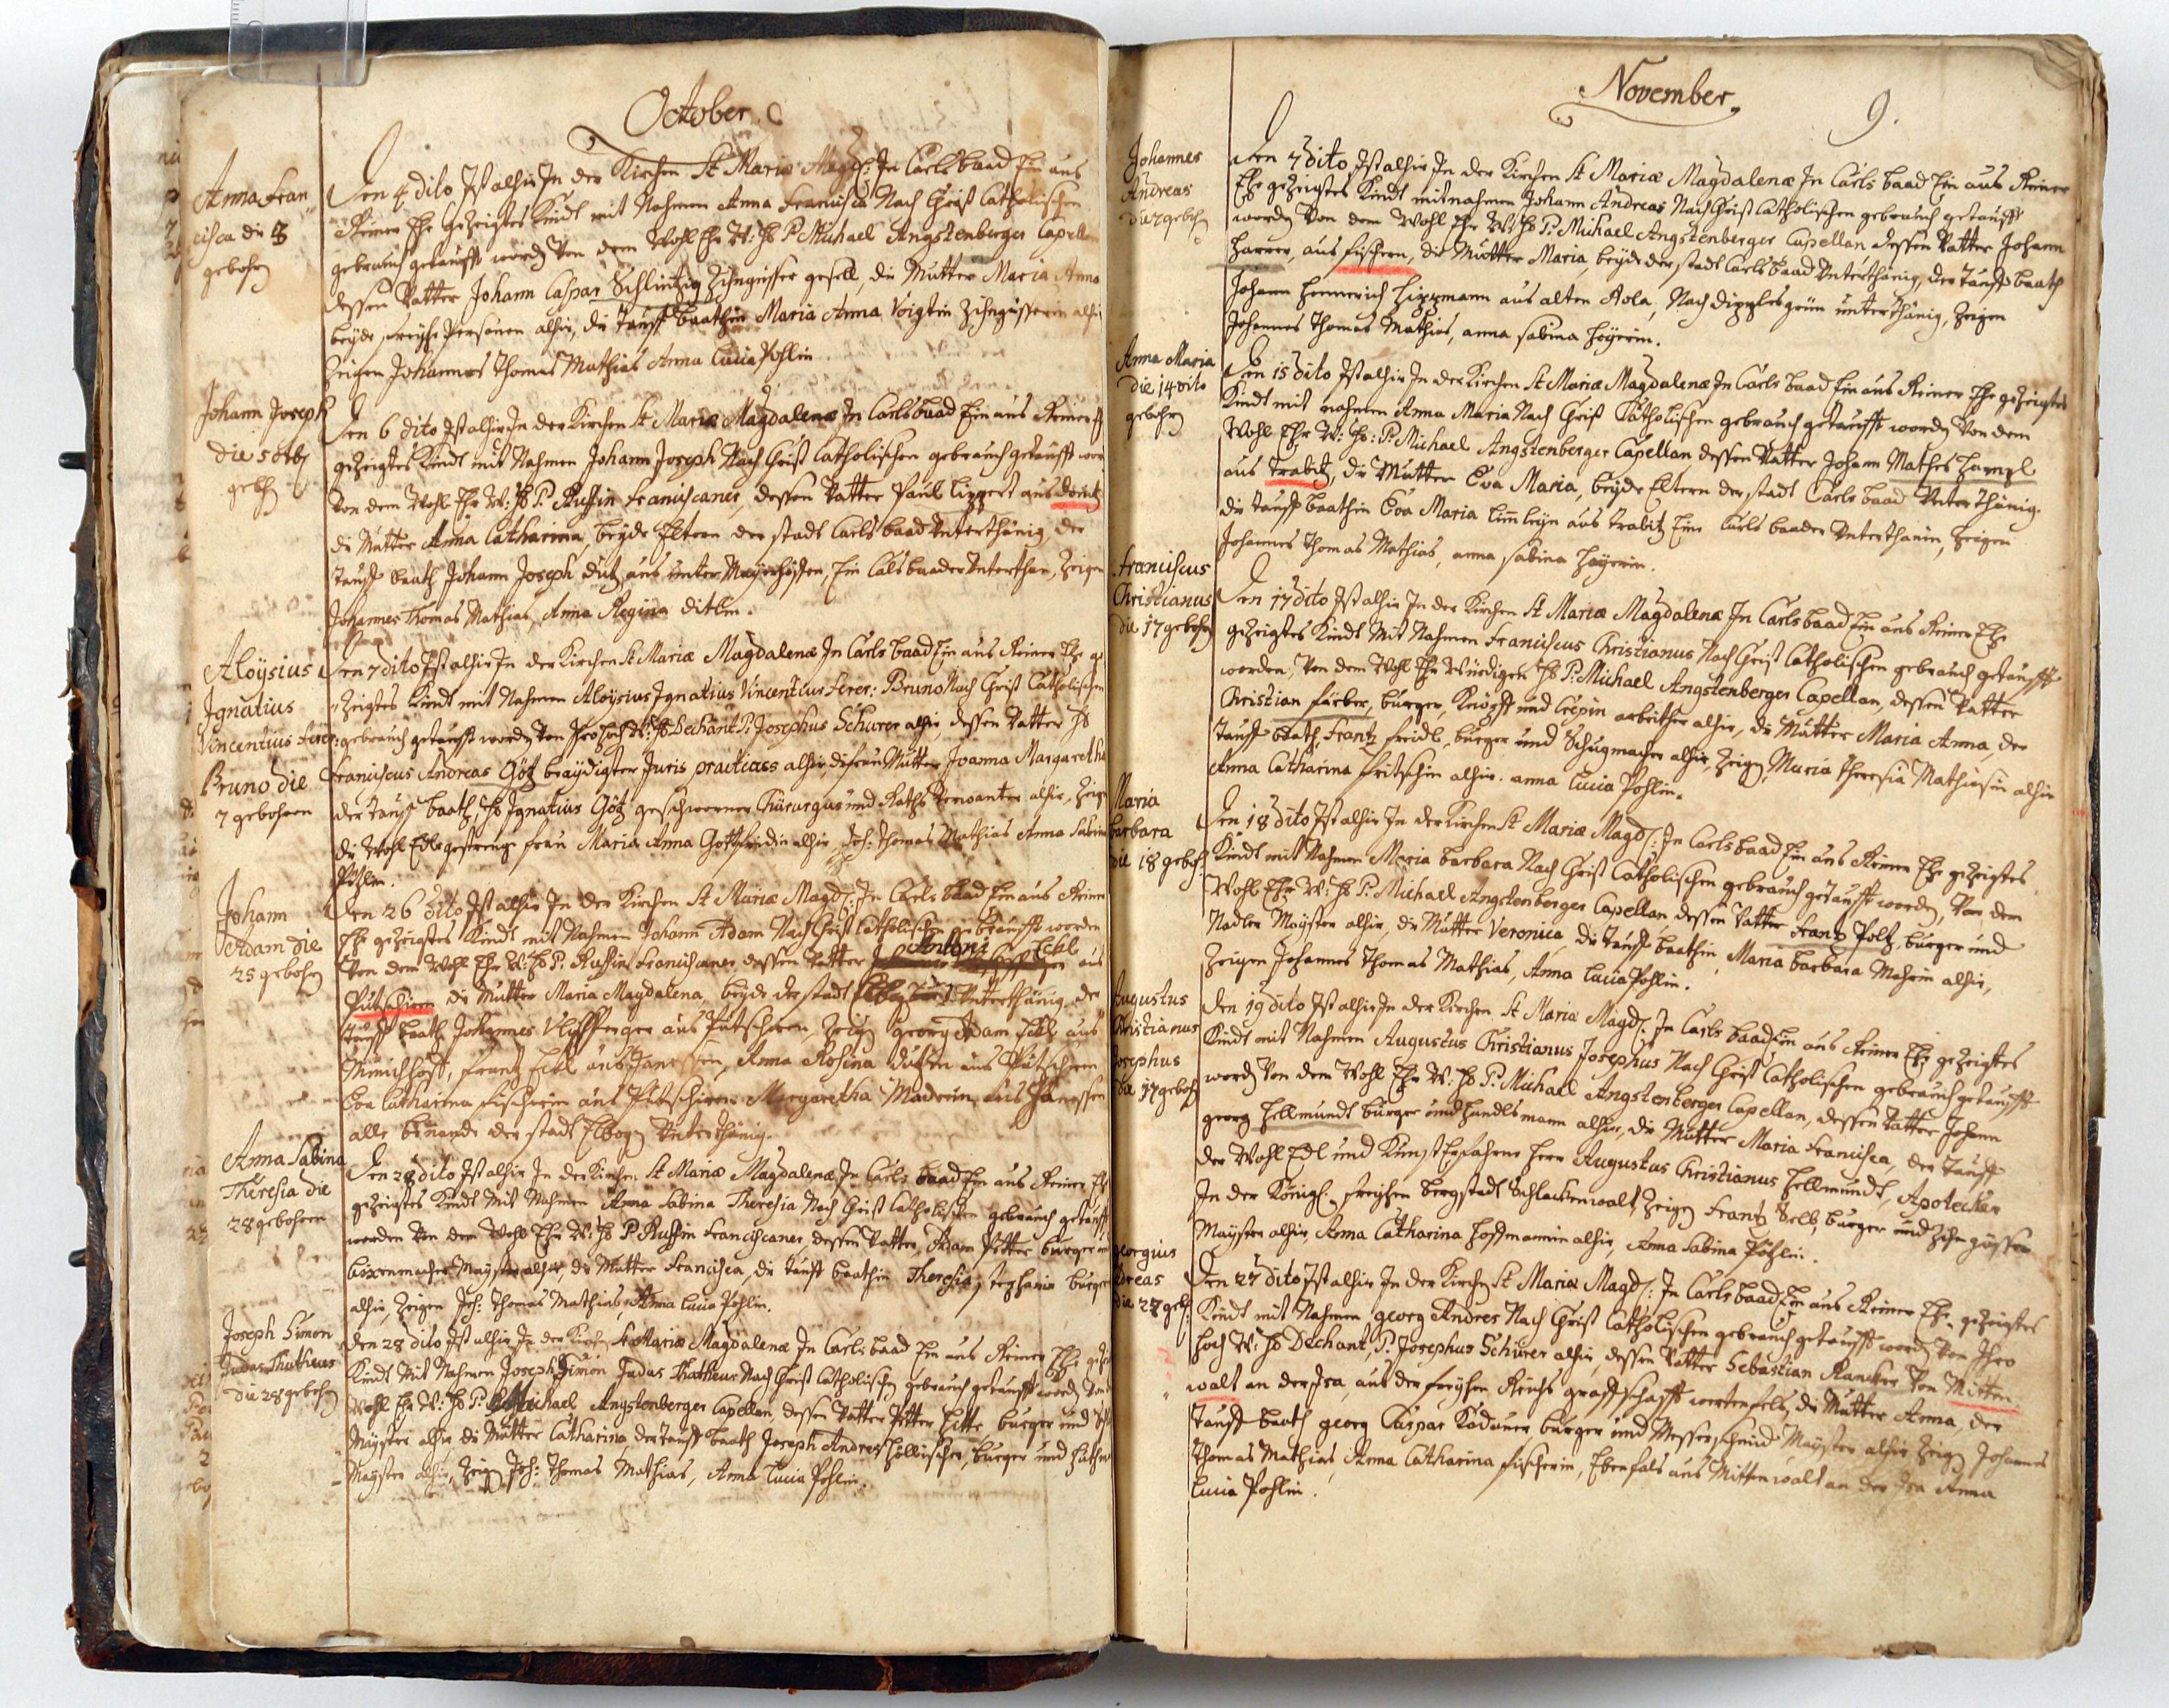 October.
Anna Fran
cisca die 3
gebohrn
Den 4 dito Ist alhir In der Kirchen St Mariæ Magd: In Carlsbaad Ein aus
Reiner Ehe gezeigtes Kindt mit Nahmen Anna Francisca Nach Christ Catholischen
gebrauch getaufft word Von dem Wohl Ehr W: H P Michael Angstenberger Capellan
dessen Vatter Johann Caspar Schlintzig Zihngisser gesell, die Mutter Maria Anna
beyde, freyhe Personen alhir, die Tauff baathin Maria Anna Voigtin Zihngisserin alhir
Zeigen Johannes Thomas Mathias Anna Lucia Pohlin
Johann Joseph
die 5 octb
geb
Den 6 dito Ist alhir In der Kirchen St Mariæ Magdalenæ In Carlsbaad Ein aus Reiner Eh
gezeigtes Kindt mit Nahmen Johann Joseph Nach Christ Catholischen gebrauch getaufft wor
Von dem Wohl Ehr W: H P. Ruffin Franciscaner, dessen Vatter Paul Lippert aus Donitz
die Mutter Anna Catharina, beyde Eltern der stadt Carls baad Unterthänig der
Tauff baath Johann Joseph dutz aus Unter Mayerhöffen, Ein Calsbaader Unterthan, Zeigen
Johannes Thomas Mathias, Anna Regina ditlin.
Aloysius
Ignatius
Vincentius Ferer:
Bruno die
7 gebohren
Den 7 dito Ist alhir In der Kirchen St Mariæ Magdalenæ In Carls baad Ein aus Reiner Ehe ge
zeigtes Kindt mit Nahmen Aloysius Ignatius Vincentius Ferer: Bruno Nach Christ Catholischen
gebrauch getaufft word Von Ihro Hoch W: H Dechant P: Josephus Schürer alhir, dessen Vatter H
Franciscus Andreas Götz beaydigter Juris practicus alhir, die frau Mutter Joanna Margaretha
der Tauff baath, H Ignatius Götz geschworner Chirurgus und Raths Verwanter alhir, Zeig
die Wohl Edlegestrenge frau Maria Anna Gottfridin alhir, Joh: Thomas Mathias Anna Sabina
Pöhlin.
Johann
Adam die
25 gebohrn
Den 26 dito Ist alhir In der Kirchen St Mariæ Magd: In Carls baad Ein aus Reiner
Ehe gezeigtes Kindt mit Nahmen Johann Adam Nach Christ Catholischen getaufft worden
Antoni Eckl
Von dem Wohl Ehr W: H P. Ruffin Franciscaner dessen Vatter aus
Putschirn die Mutter Maria Magdalena, beyde der stadt Unterthänig der
Tauff baath Johannes aus Putschirn, Zeig georg Adam aus
Münichhoff, frantz aus Janessen, Anna Rosina dutzin aus Putschirn
Eva Catharina Fischerin aus Putschirn Margaretha Maderin aus Janessen
alle der stadt Elbog Unterthänig.
Anna Sabina
Theresia die
28 gebohren
Den 28 dito Ist alhir In der Kirchen St Mariæ Magdalenæ In Carls baad Ein aus Reiner Eh
gezeigtes Kindt Mit Nahmen Anna Sabina Theresia Nach Christ Catholischen gebrauch getaufft
worden Von dem Wohl Ehr W: H P Ruffin Franciscaner, dessen Vatter, Adam Petter burger
bixenmacher Mayster alhir, die Mutter Francisca, die Tauff baathin Theresia burger
alhir, Zeigen Joh: Thomas Mathias, Anna Lucia Pohlin.
Joseph Simon
Judas Thatheus
die 28 gebohrn
Den 28 dito Ist alhir In der Kirch St Mariæ Magdalenæ In Carls baad Ein aus Reiner Ehe
Kindt Mit Nahmen Joseph Simon Judas Thatheus Nach Christ Catholisch gebrauch getaufft word Von
Wohl Ehr W: H P: Michael Angstenberger Capellan, dessen Vatter Petter burger und
Mayster alhir, die Mutter Catharina, der Tauff baath Joseph Andres burger und
Mayster alhir, Zeig Joh: Thomas Mathias, Anna Lucia Pohlin.
November.
9.
Johannes
Andreas
die 7 gebohrn
Den 7 dito Ist alhir In der Kirchen St Mariæ Magdalenæ In Carls baad Ein aus Reiner
Ehe gezeigtes Kindt mit nahmen Johann Andreas Nach Christ Catholischen gebrauch getaufft
worden Von dem Wohl Ehr W: H P: Michael Angstenberger Capellan, dessen Vatter Johann
Harrer, aus Fischern, die Mutter Maria, beyde der stadt Carls baad Unterthänig, der Tauff baath
Johann Heinnerich Hippmann aus alten Rola, Nach dipplesgrün unterthänig, Zeigen
Johannes Thomas Mathias, anna sabina Höyerin.
Anna Maria
die 14 dito
gebohrn
Den 15 dito Ist alhir In der Kirchen St Mariæ Magdalenæ In Carls baad Ein aus Reiner Ehe gezeigtes
Kindt mit nahmen Anna Maria Nach Christ Catholischen gebrauch getaufft word Von dem
Wohl Ehr W: H: P: Michael Angstenberger Capellan dessen Vatter Johann Mathes Hampl
aus Trabitz, die Mutter Eva Maria, beyde Eltern der stadt Carls baad Unterthänig.
die Tauff baathin Eva Maria aus Trabitz Eine Carls baader Unterthanin, Zeigen
Johannes Thomas Mathias, anna sabina Höyerin.
Franciscus
Christianus
die 17 gebohrn
Den 17 dito Ist alhir In der Kirchen St Mariæ Magdalenæ In Carlsbaad Ein aus Reiner Ehe
gezeigtes Kindt Mit Nahmen Franciscus Christianus Nach Christ Catholischen gebrauch getaufft
worden, Von dem Wohl Ehr Würdigen H P: Michael Angstenberger Capellan, dessen Vatter
Christian Färber, burger, Knöpff und Crepin arbeither alhir, die Mutter Maria Anna, der
Tauff baath, Frantz Freidl, burger und Schugmacher alhir, Zeig Maria Theresia Mathiasin alhir
Anna Catharina Fritschin alhir. anna Lucia Pohlin.
Maria
barbara
die 18 geboh:
Den 18 dito Ist alhir In der Kirchen St Mariæ Magd: In Carlsbaad Ein aus Reiner Ehe gezeigtes
Kindt mit Nahmen Maria barbara Nach Christ Catholischen gebrauch getaufft worden, Von dem
Wohl Ehr W: H P: Michael Angstenberger Capellan dessen Vatter Frantz Poltz, burger und
Nadler Mayster alhir, die Mutter Veronica, die Tauff baathin, Maria barbara alhir,
Zeigen Johannes Thomas Mathias, Anna Lucia Pohlin.
Augustus
Christianus
Josephus
die 17 geboh
Den 19 dito Ist alhir In der Kirchen St Mariæ Magd: In Carls baad Ein aus Reiner Ehe gezeigtes
Kindt mit Nahmen Augustus Christianus Josephus Nach Christ Catholischen gebrauch getaufft
word Von dem Wohl Ehr W: H P: Michael Angstenberger Capellan, dessen Vatter Johann
georg Hellmundt burger und Handlsmann alhir, die Mutter Maria Francisca, der Tauff
der Wohl Edl und Kunst Erfahrne Herr Augustus Christianus Hellmundt, Apotecker
In der Königl: freyhen bergstadt Schlackenwalt, Zeig Frantz burger und Zihngisser
Mayster alhir, Anna Catharina Hoffmannin alhir, Anna Sabina Pöhlin.
georgius
Andreas
die 27 geb:
Den 27 dito Ist alhir In der Kirch St Mariæ Magd: In Carlsbaad Ein aus Reiner Ehe gezeigtes
Kindt mit Nahmen georg Andres Nach Christ Catholischen gebrauch getaufft word Von Ihro
Hoch W: H Dechant, P: Josephus Schürer alhir, dessen Vatter Sebastian Rancker Von Mitten
walt an der Isa, aus der freyhen Reichs graffschafft wertenfels, die Mutter Anna, der
Tauff baath georg Caspar Kodauer burger und Messerschmid Mayster alhir, Zeig Johannes
Thomas Mathias, Anna Catharina Fischerin, Ebenfals aus Mittenwalt an der Isa Anna
Lucia Pohlin.